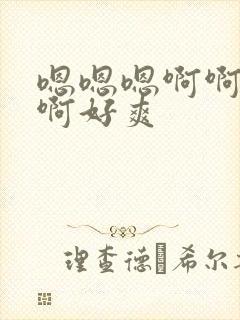 嗯嗯嗯啊啊
啊好爽
理查德 希尔